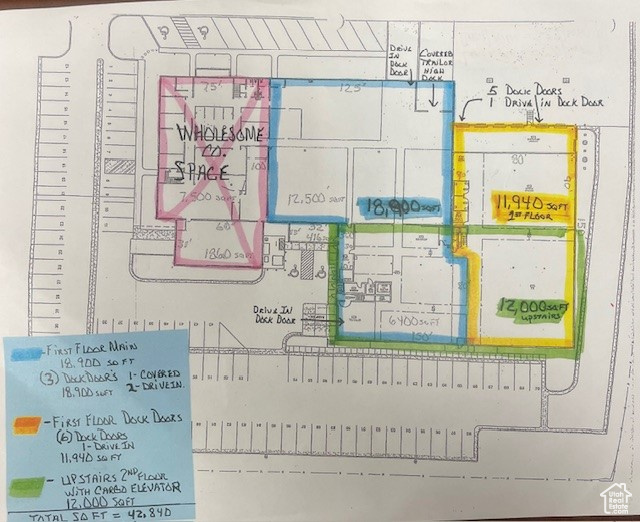 DRIVE
IN
DOCK
DOOR
COVERED
TRAILOR
HIGH
DOCK
5 DOCK DOORS
1 DRIVE IN DOCK DOOR
75'
125'
WHOLESOME
CO.
SPACE
100'
7,500 SQFT
12,500 SQFT
18,900 SQFT
80'
11,940 SQFT
1ST FLOOR
60'
1860 SQFT
32'
416
DRIVE IN
DOCK DOOR
6400 SQFT
150'
12,000 SQFT
UPSTAIRS
- FIRST FLOOR MAIN
18,900 SQ FT
(3) DOCK DOORS 1-COVERED
18,900 SQFT 2-DRIVE IN.
- FIRST FLOOR DOCK DOORS
(6) DOCK DOORS
1-DRIVE IN
11,940 SQ FT
- UPSTAIRS 2ND FLOOR
WITH CARGO ELEVATOR
12,000 SQFT
TOTAL SQ FT = 42,840
Utah
Real
Estate
.com